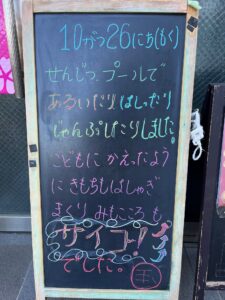 10がつ26にち(もく)
せんじつ プールで
あるいたり はしったり
じゃんぷしたりしました。
こどもに かえったよう
に きもちもはしゃぎ
まくり みもこころも
サイコー!
でした。